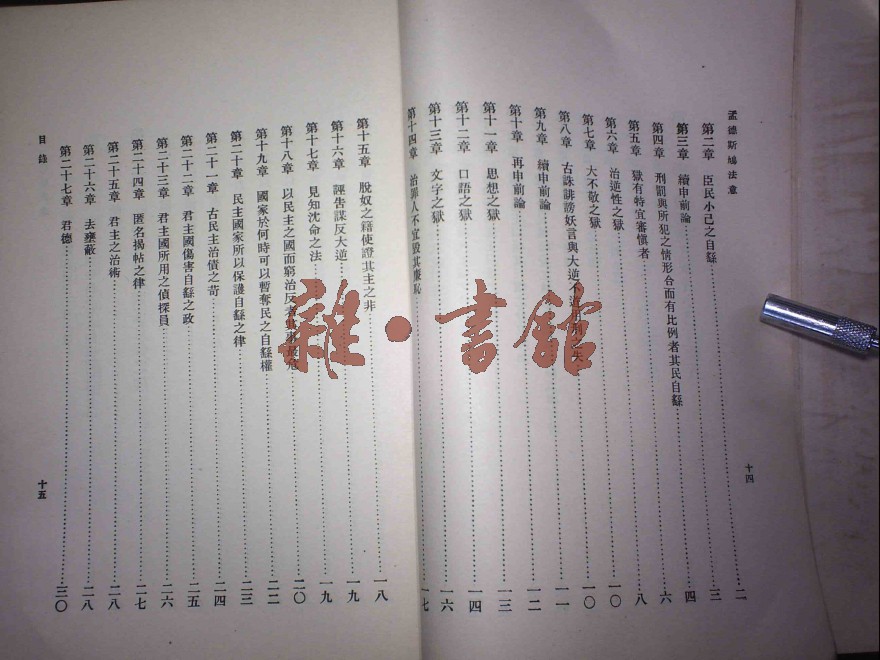 孟德斯鳩法意
第二章 臣民小己之自繇 二
第三章 續申前論 三
第四章 刑罰與所犯之情形合而有比例者其民自繇 四
第五章 獄有特宜審慎者 六
第六章 治逆性之獄 八
第七章 大不敬之獄 一〇
第八章 古誅誹謗妖言與大逆不道 一〇
第九章 續申前論 一一
第十章 再申前論 一二
第十一章 思想之獄 一三
第十二章 口語之獄 一四
第十三章 文字之獄 一六
第十四章 治罪人不宜毀其廉恥 一七
十四
第十五章 脫奴之籍使證其主之非 一八
第十六章 誣告謀反大逆 一九
第十七章 見知沈命之法 一九
第十八章 以民主之國而窮治反者 二〇
第十九章 國家於何時可以暫奪民之自繇權 二二
第二十章 民主國家所以保護自繇之律 二三
第二十一章 古民主治債之苛 二四
第二十二章 君主國傷害自繇之政 二五
第二十三章 君主國所用之偵探員 二六
第二十四章 匿名揭帖之律 二七
第二十五章 君主之治術 二八
第二十六章 去壅蔽 二八
第二十七章 君德 三〇
目錄
十五
雜·書館